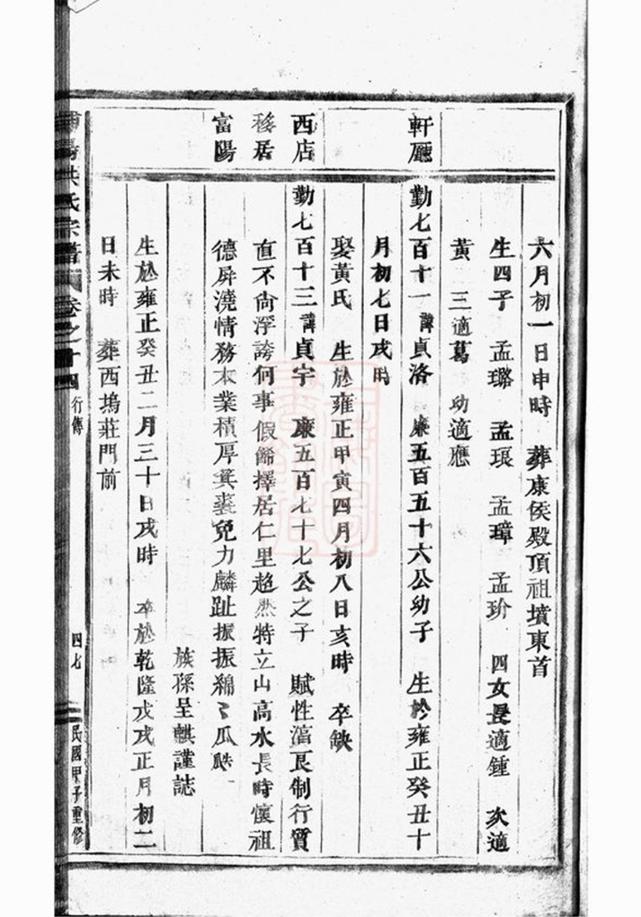 六月初一日申時　葬康侯殿頂祖墳東首
生四子　孟璐　孟琅　孟璋　孟玠　四女長適鍾　次適
黄　三適葛　幼適應
軒廳
勤七百十一諱貞洛　康五百五十六公幼子　生於雍正癸丑十
月初七日戌時
娶黄氏　生於雍正甲寅四月初八日亥時　卒缺
西店
移居
富陽
勤七百十三諱貞宇　康五百七十七公之子　賦性溫良制行質
直不尙浮誇何事假餙擇居仁里超然特立山高水長時懷祖
德屏澆情務本業積厚箕裘兒力麟趾振振綿〻瓜瓞
族孫呈麒謹誌
生於雍正癸丑二月三十日戌時　卒於乾隆戊戌正月初二
日未時　葬西塢莊門前
洪氏宗譜　卷之十四　行傳　四七　民國甲子重修